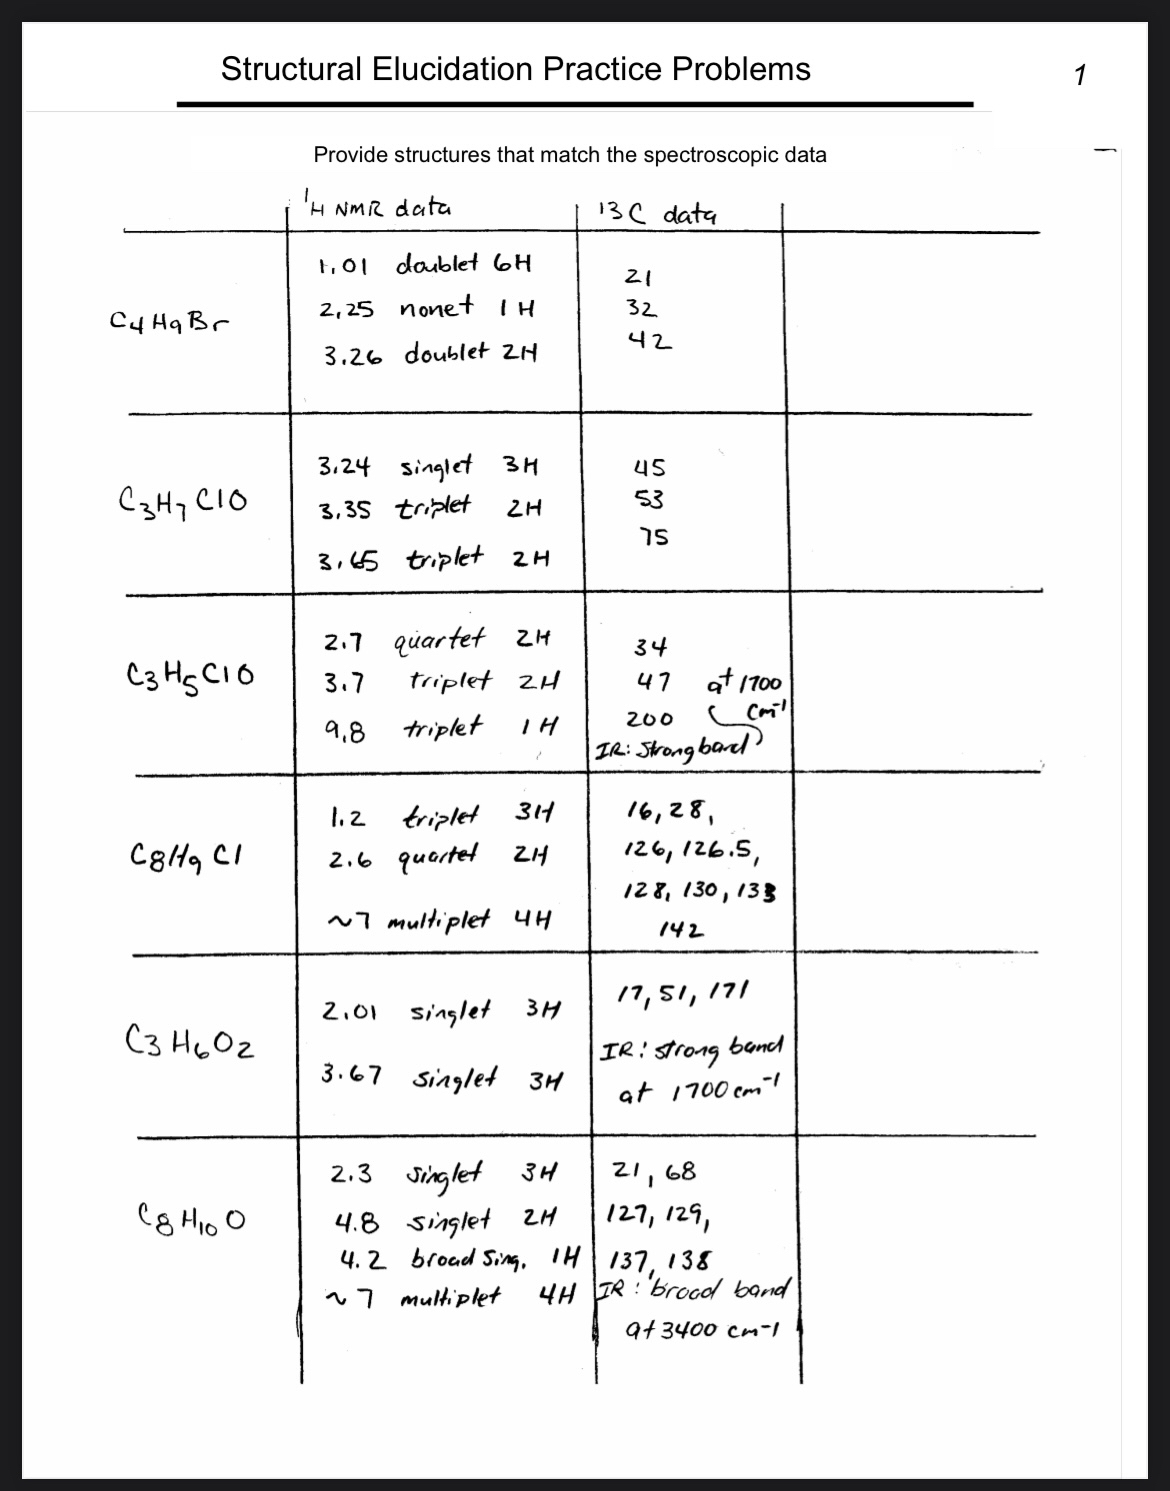 Structural Elucidation Practice Problems
1
Provide structures that match the spectroscopic data
1H NMR data
13C data
C4H9Br
1.01 doublet 6H
2.25 nonet 1H
3.26 doublet 2H
21
32
42
C3H7ClO
3.24 singlet 3H
3.35 triplet 2H
3.65 triplet 2H
45
53
75
C3H5ClO
2.7 quartet 2H
3.7 triplet 2H
9.8 triplet 1H
34
47
200
IR: Strong band
at 1700
cm-1
C8H9Cl
1.2 triplet 3H
2.6 quartet 2H
~7 multiplet 4H
16, 28,
126, 126.5,
128, 130, 133
142
C3H6O2
2.01 singlet 3H
3.67 singlet 3H
17, 51, 171
IR: strong band
at 1700 cm-1
C8H10O
2.3 singlet 3H
4.8 singlet 2H
4.2 broad sing. 1H
~7 multiplet 4H
21, 68
127, 129,
137, 138
IR: broad band
at 3400 cm-1